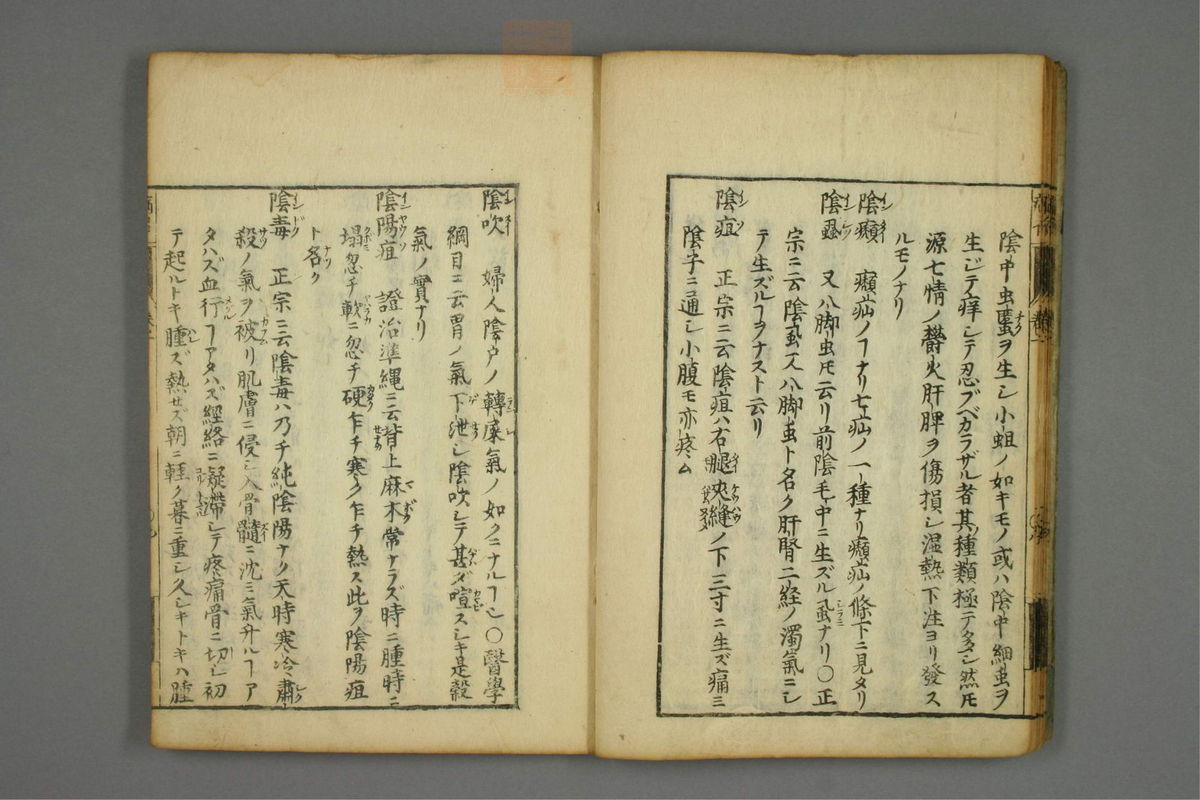 陰中虫䘌ヲ生シ小蛆ノ如キモノ或ハ陰中細虫ヲ
生ジテ痒シテ忍ブベカラザル者其種類極テ多シ然㇓モ
源七情ノ欝火肝脾ヲ傷損シ湿熱下注ヨリ發ス
ルモノナリ
陰㿗 㿗疝ノヿナリ七疝ノ一種ナリ㿗疝ノ條下ニ見タリ
陰蝨 又八脚虫㇓モ云リ前陰毛中ニ生ズル虱ナリ〇正
宗ニ云陰虱一名八脚虫ト名ク肝腎二経ノ濁氣ニシ
テ生ズルヿヲナスト云リ
陰疽 正宗ニ云陰疽ハ右腿夾縫ノ下三寸ニ生ズ痛ミ
陰子ニ通シ小腹モ亦疼ム
陰吹 婦人陰戸ノ轉屎氣ノ如クニナルヿシ〇醫學
綱目ニ云胃ノ氣下泄シ陰吹シテ甚ダ喧スシキ是穀
氣ノ實ナリ
陰陽疽 證治準繩ニ云背上麻木常ナラズ時ニ腫時ニ
塌忽チ軟ニ忽チ硬乍チ寒ク乍チ熱ス此ヲ陰陽疽
ト名ク
陰毒 正宗ニ云陰毒ハ乃チ純陰陽ナク天時寒冷肅
殺ノ氣ヲ被リ肌膚ニ侵シ入骨髓ニ沈ミ氣升ルヿア
タハズ血行ヿアタハズ經絡ニ凝滯シテ疼痛骨ニ切シ初
テ起ルトキ腫ズ熱セズ朝ニ軽ク暮ニ重シ久シキトキハ腫